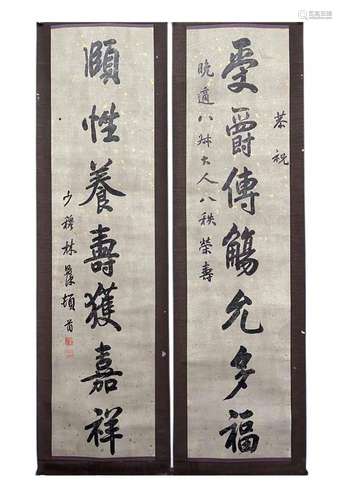 恭祝
受爵傳觴允多福
晚適八㭐大人八秩榮壽
頤性養壽獲嘉祥
少穆林則徐頓首